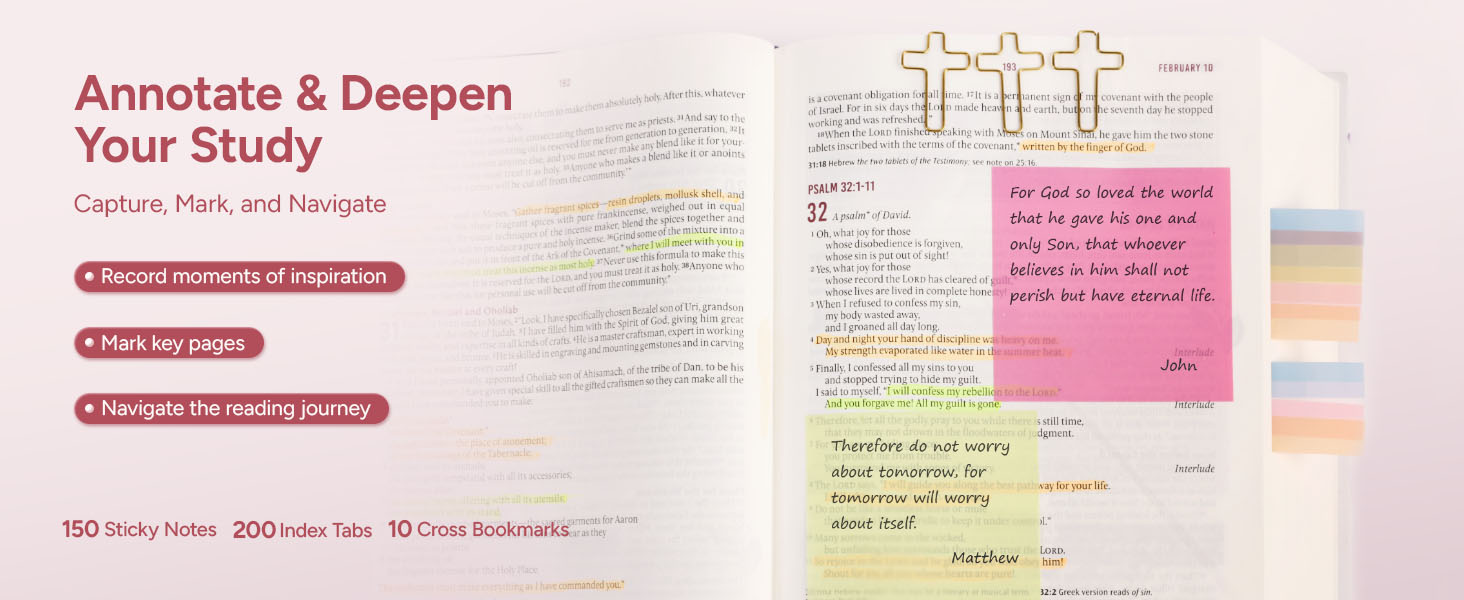 Annotate & Deepen
Your Study
Capture, Mark, and Navigate
Record moments of inspiration
Mark key pages
Navigate the reading journey
150 Sticky Notes 200 Index Tabs 10 Cross Bookmarks
192
them to make them absolutely holy. After this, whatever
consecrating them to serve me as priests. 31And say to the
oil is reserved for me from generation to generation. 32It
anyone else, and you must never make any blend like it for your-
treat it as holy. 33Anyone who makes a blend like it or anoints
will be cut off from the community.’”
Moses, “Gather fragrant spices—resin droplets, mollusk shell, and
fragrant spices with pure frankincense, weighed out in equal
techniques of the incense maker, blend the spices together and
to produce a pure and holy incense. 36Grind some of the mixture into a
put it in front of the Ark of the Covenant,* where I will meet with you in
treat this incense as most holy. 37Never use this formula to make this
It is reserved for the LORD, and you must treat it as holy. 38Anyone who
for personal use will be cut off from the community.”
31 Bezalel and Oholiab
said to Moses, 2“Look, I have specifically chosen Bezalel son of Uri, grandson
tribe of Judah. 3I have filled him with the Spirit of God, giving him great
and expertise in all kinds of crafts. 4He is a master craftsman, expert in working
bronze. 5He is skilled in engraving and mounting gemstones and in carving
at every craft!
personally appointed Oholiab son of Ahisamach, of the tribe of Dan, to be his
I have given special skill to all the gifted craftsmen so they can make all the
commanded you to make:
the place of atonement;
of the Tabernacle;
with all its accessories;
offering with all its utensils;
with its stand;
sacred garments for Aaron
wear as they
incense for the Holy Place.
must make everything as I have commanded you.”
193 FEBRUARY 10
is a covenant obligation for all time. 17It is a permanent sign of my covenant with the people
of Israel. For in six days the LORD made heaven and earth, but on the seventh day he stopped
working and was refreshed.’”
18When the LORD finished speaking with Moses on Mount Sinai, he gave him the two stone
tablets inscribed with the terms of the covenant,* written by the finger of God.
31:18 Hebrew the two tablets of the Testimony; see note on 25:16.
PSALM 32:1-11
32 A psalm* of David.
1 Oh, what joy for those
whose disobedience is forgiven,
whose sin is put out of sight!
2 Yes, what joy for those
whose record the LORD has cleared of guilt,*
whose lives are lived in complete honesty!
3 When I refused to confess my sin,
my body wasted away,
and I groaned all day long.
4 Day and night your hand of discipline was heavy on me.
My strength evaporated like water in the summer heat.
Interlude
5 Finally, I confessed all my sins to you
and stopped trying to hide my guilt.
I said to myself, “I will confess my rebellion to the LORD.”
And you forgave me! All my guilt is gone.
Interlude
6 Therefore, let all the godly pray to you while there is still time,
that they may not drown in the floodwaters of judgment.
Interlude
8 The LORD says, “I will guide you along the best pathway for your life.
9 Do not be like a senseless horse or mule
to keep it under control.”
10 Many sorrows come to the wicked,
but unfailing love surrounds those who trust the LORD.
him!
Shout for joy, all you whose hearts are pure!
32:2 Greek version reads of sin.
For God so loved the world
that he gave his one and
only Son, that whoever
believes in him shall not
perish but have eternal life.
John
Therefore do not worry
about tomorrow, for
tomorrow will worry
about itself.
Matthew